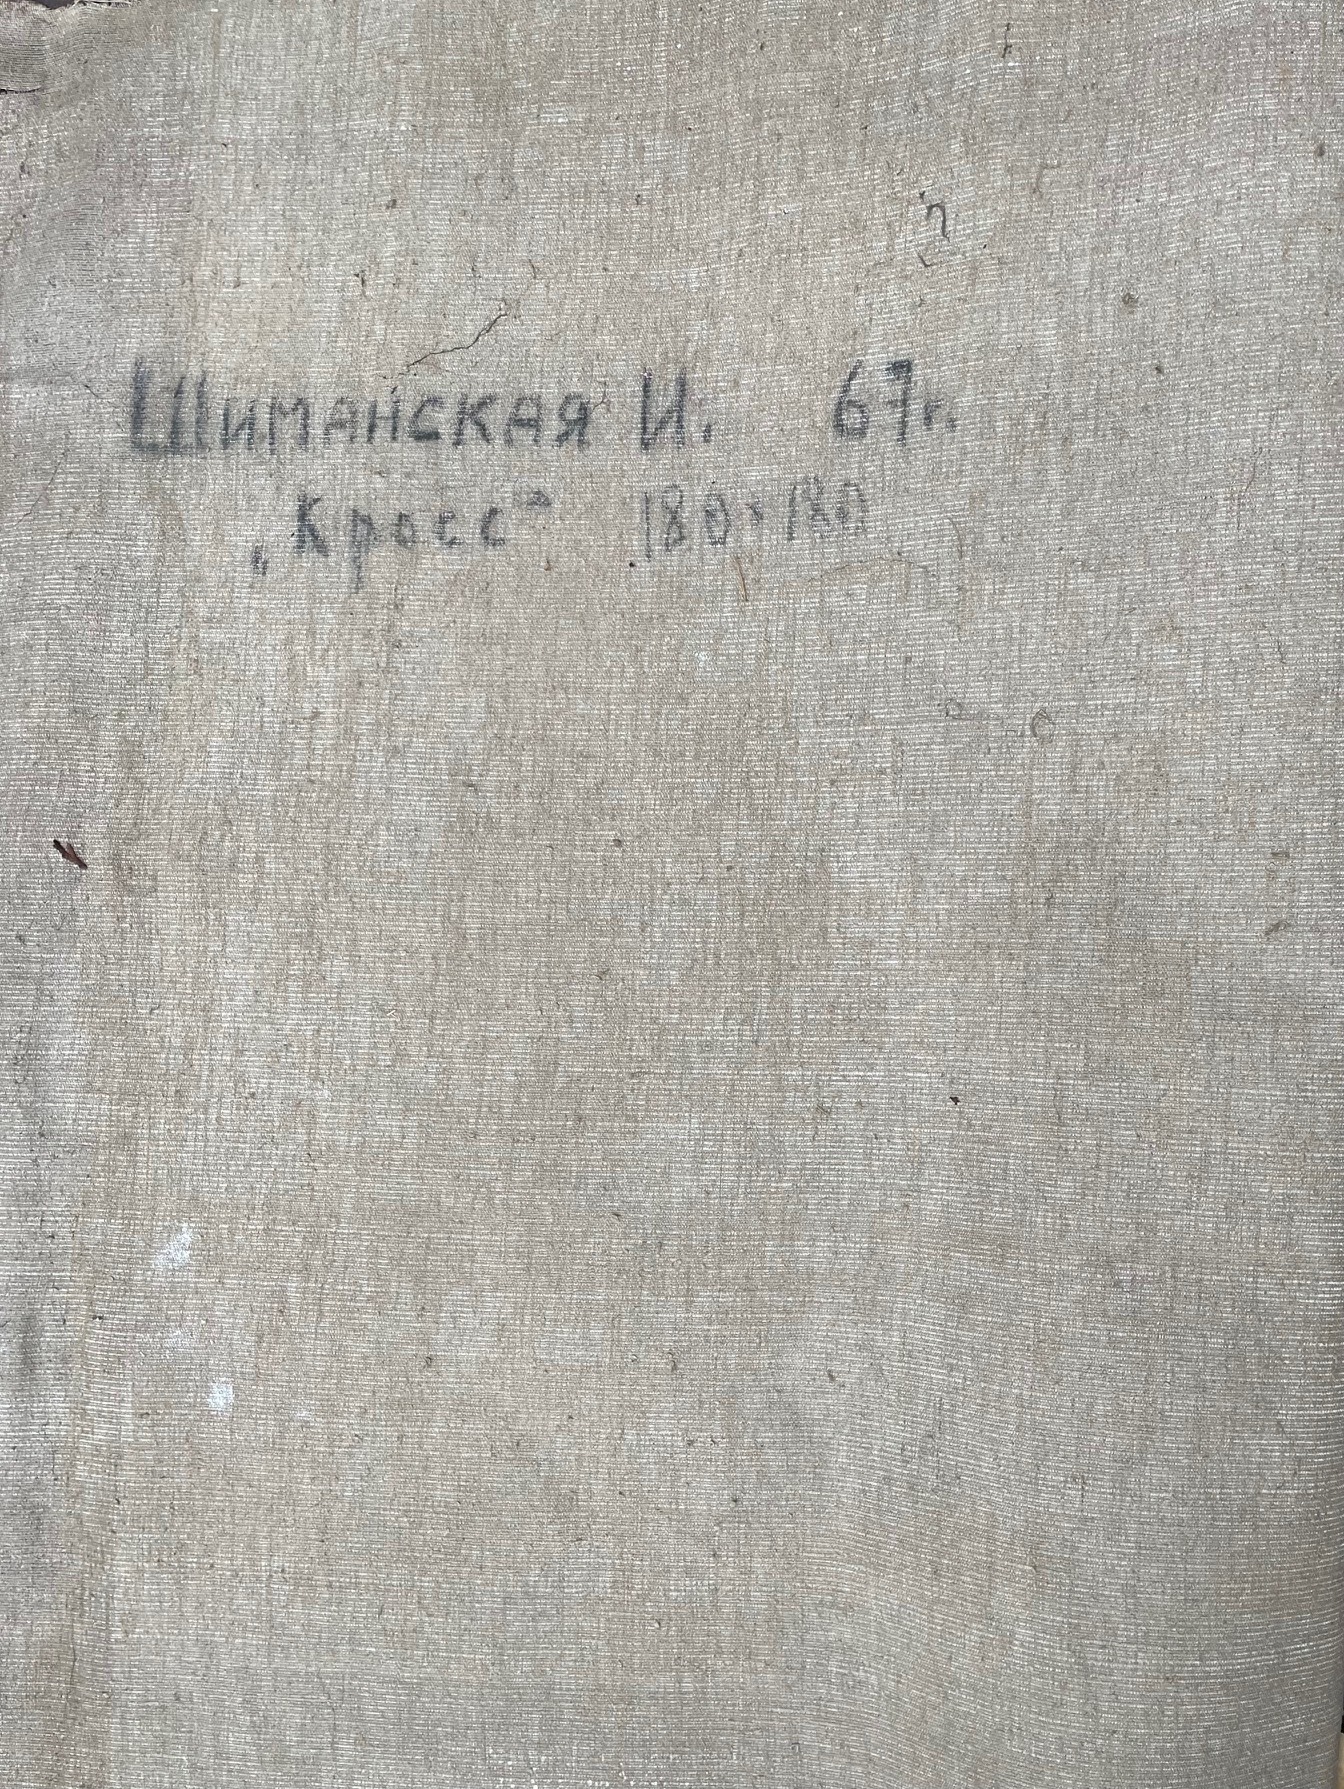 Шиманская И. 67г.
„Кросс" 180×180